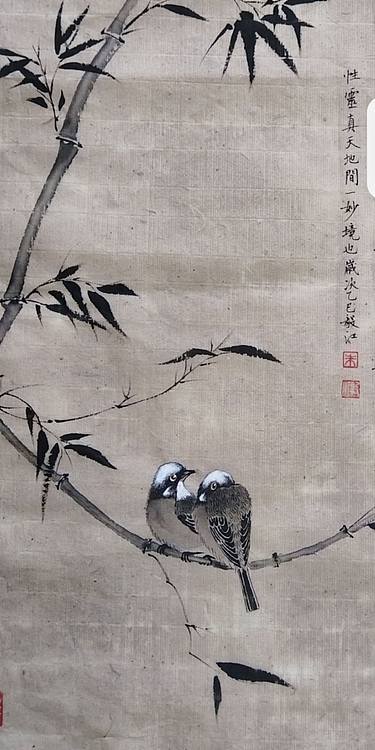 性靈真天地間一妙境也歲次乙巳毅江
朱